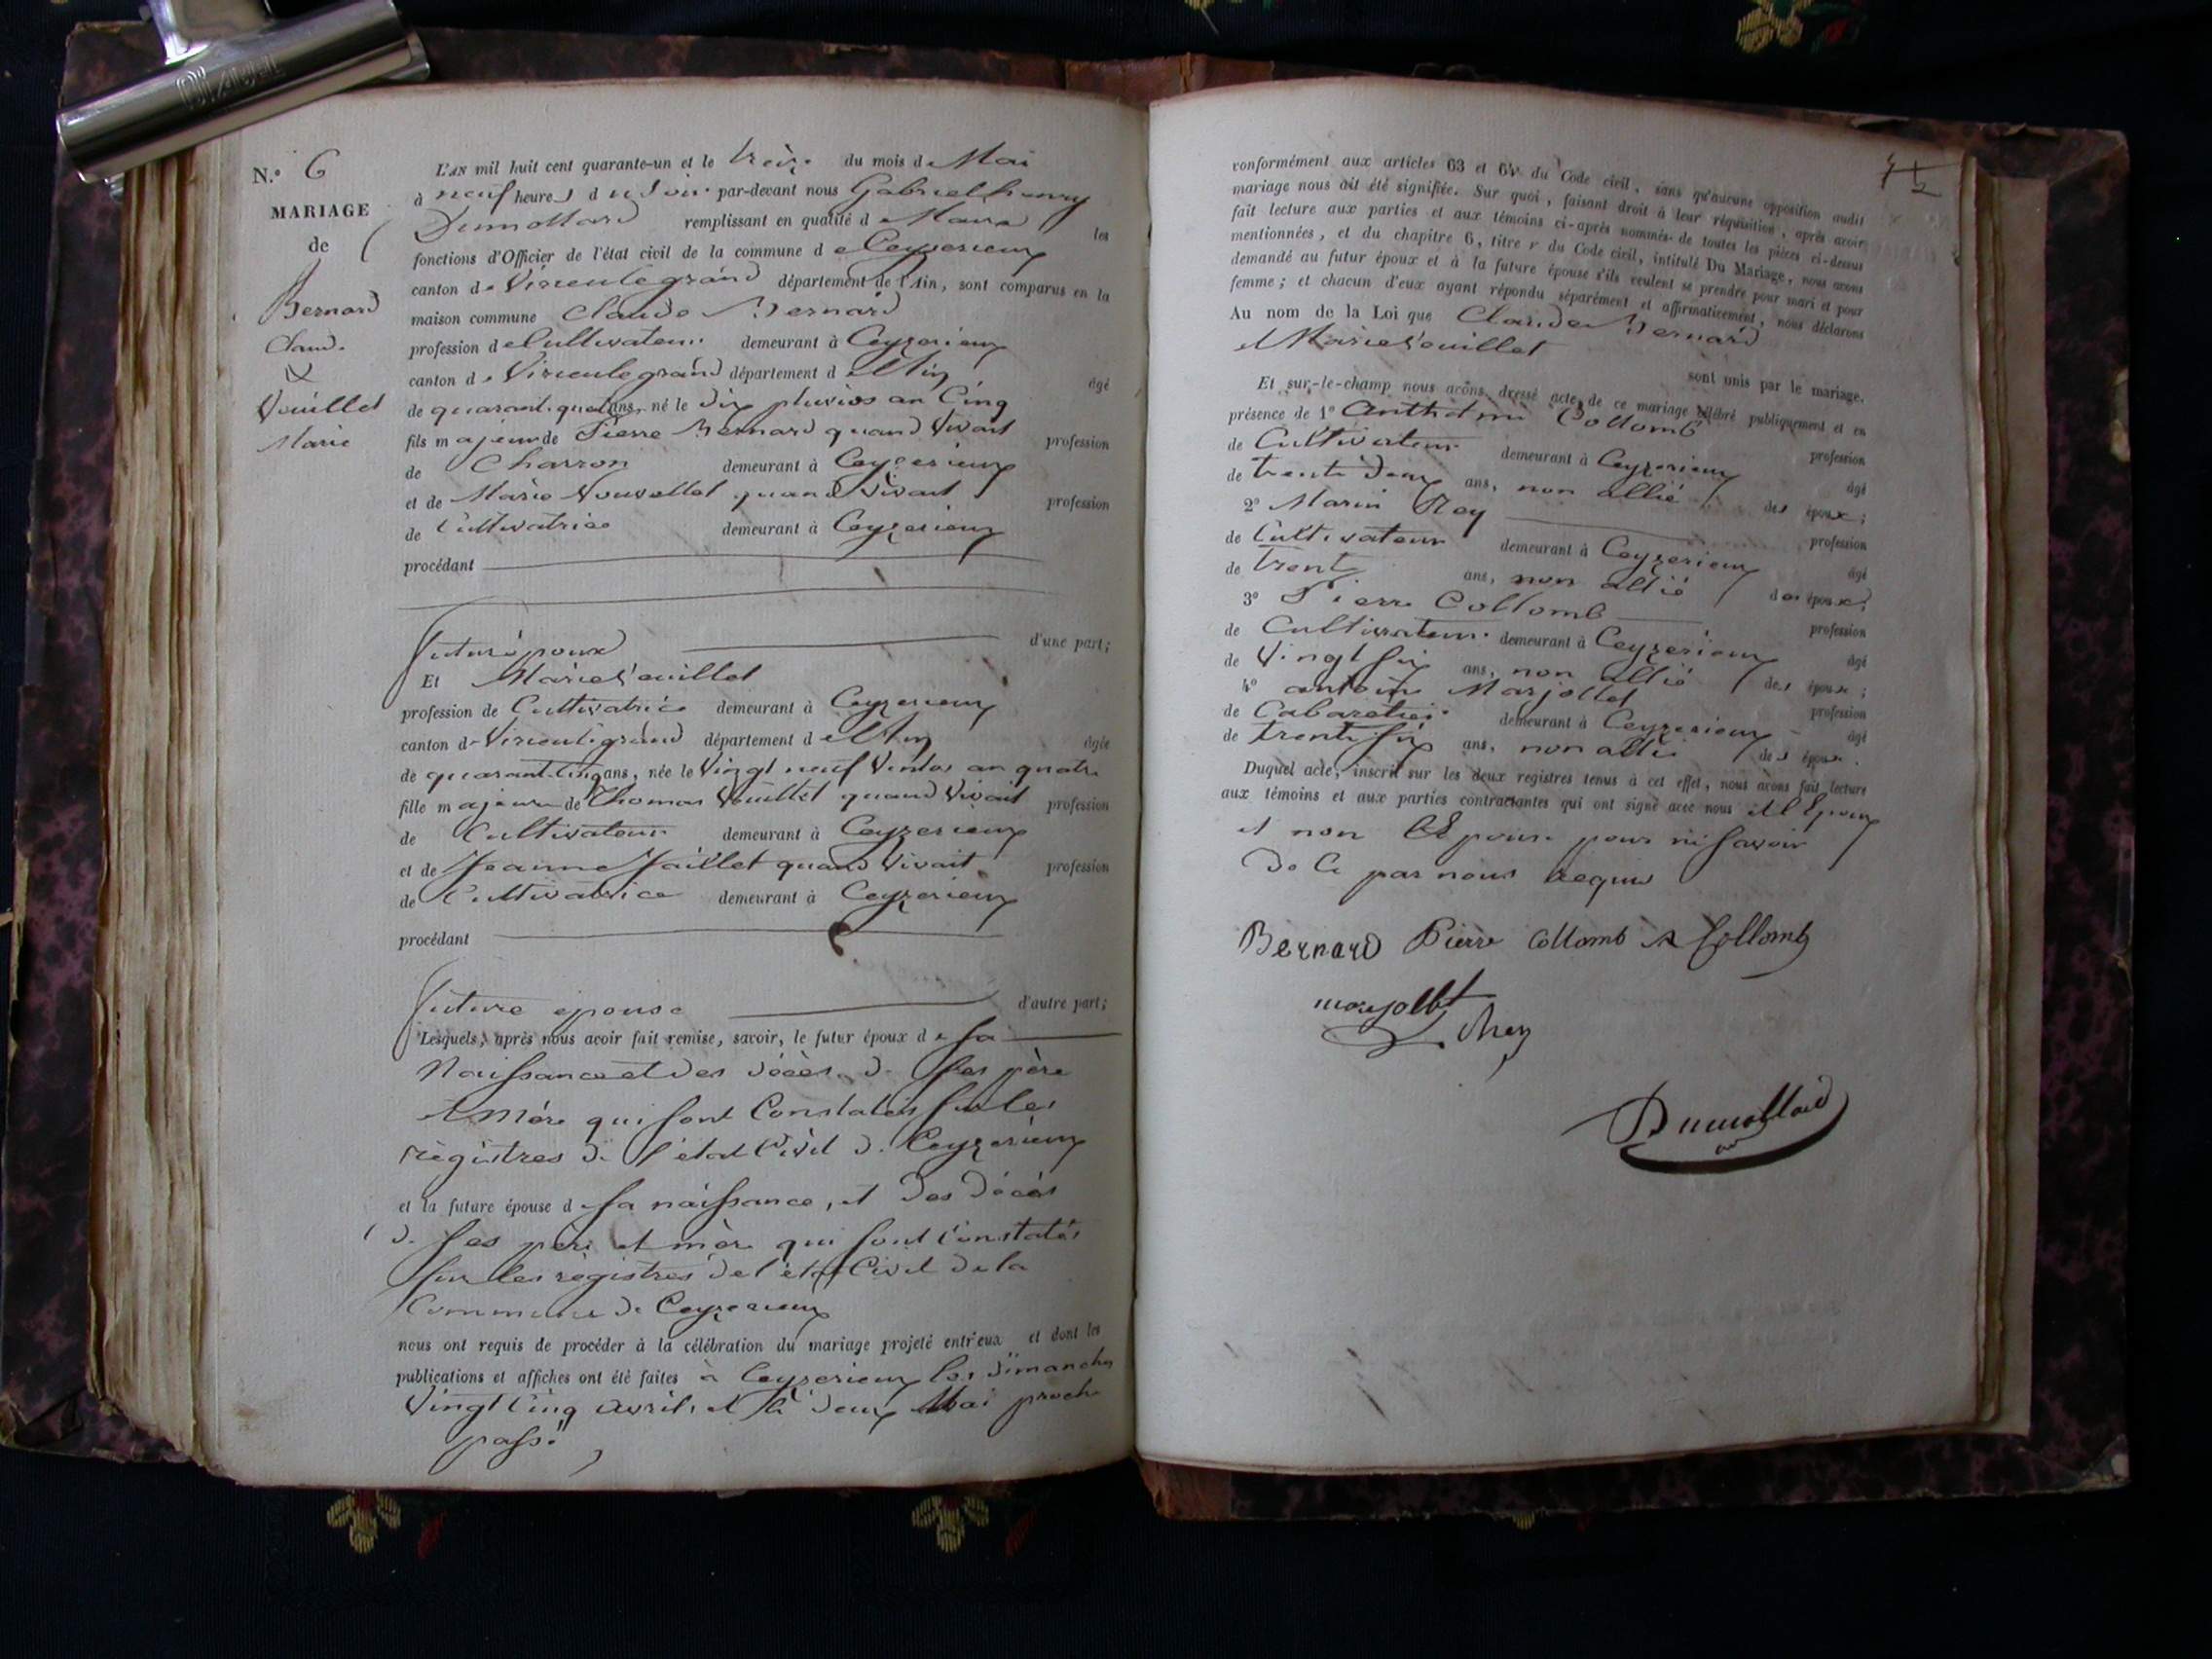 N.º 6
MARIAGE
de
Bernard
Claud.
&
Vouillet
Marie
L'AN mil huit cent quarante-un et le treize du mois de Mai
à neuf heures du Soir par-devant nous Gabriel henry
Dumollard remplissant en qualité de Maire les
fonctions d'Officier de l'état civil de la commune de Ceyzerieux
canton de Virieulegrand département de l'Ain, sont comparus en la
maison commune Claude Bernard
profession de Cultivateur demeurant à Ceyzerieux
canton de Virieulegrand département de l'Ain âgé
de quarant.quat ans, né le dix pluvios an Cinq
fils majeur de Pierre Bernard quand Vivait profession
de Charron demeurant à Ceyzerieux
et de Marie Vouvollet quand Vivait profession
de Cultivatrice demeurant à Ceyzerieux
procédant
futur époux d'une part;
Et Marie Vouillet
profession de Cultivatrice demeurant à Ceyzerieux
canton de Virieulegrand département de l'Ain âgée
de quarant.cinq ans, née le Vingt neuf Ventos an quatre
fille majeure de Thomas Vouillet quand Vivait profession
de Cultivateur demeurant à Ceyzerieux
et de Jeanne Jaillet quand Vivait profession
de Cultivatrice demeurant à Ceyzerieux
procédant
future epouse d'autre part;
Lesquels, après nous avoir fait remise, savoir, le futur époux de sa
Naissance et des décès de ses père
et Mère qui sont Constatés sur les
régistres de l'état Civil de Ceyzerieux
et la future épouse de sa naissance, et des décès
de ses père et mère qui sont Constatés
sur les régistres de l'état Civil de la
Commune de Ceyzerieux
nous ont requis de procéder à la célébration du mariage projeté entr'eux et dont les
publications et affiches ont été faites à Ceyzerieux les dimanches
Vingt Cinq avril, et le deux Mai proche
passé
conformément aux articles 63 et 64 du Code civil, sans qu'aucune opposition audit
mariage nous ait été signifiée. Sur quoi, faisant droit à leur réquisition, après avoir
fait lecture aux parties et aux témoins ci-après nommés de toutes les pièces ci-dessus
mentionnées, et du chapitre 6, titre v du Code civil, intitulé Du Mariage, nous avons
demandé au futur époux et à la future épouse s'ils veulent se prendre pour mari et pour
femme; et chacun d'eux ayant répondu séparément et affirmativement, nous déclarons
Au nom de la Loi que Claude Bernard
et Marie Vouillet
sont unis par le mariage.
Et sur-le-champ nous avons dressé acte de ce mariage célébré publiquement et en
présence de 1º Anthelme Collomb profession
de Cultivateur demeurant à Ceyzerieux âgé
de trente deux ans, non allié des époux;
2º Marin Rey profession
de Cultivateur demeurant à Ceyzerieux âgé
de trente ans, non allié des époux;
3º Pierre Collomb profession
de Cultivateur demeurant à Ceyzerieux âgé
de Vingt six ans, non allié des époux;
4º antoine Marjollet profession
de Cabaretier demeurant à Ceyzerieux âgé
de trente six ans, non allié des époux.
Duquel acte, inscrit sur les deux registres tenus à cet effet, nous avons fait lecture
aux témoins et aux parties contractantes qui ont signé avec nous et l'Epoux
et non l'Epouse pour ne savoir
de Ce par nous requis
Bernard Pierre Collomb A Collomb
marjollet
Rey
Dumollard